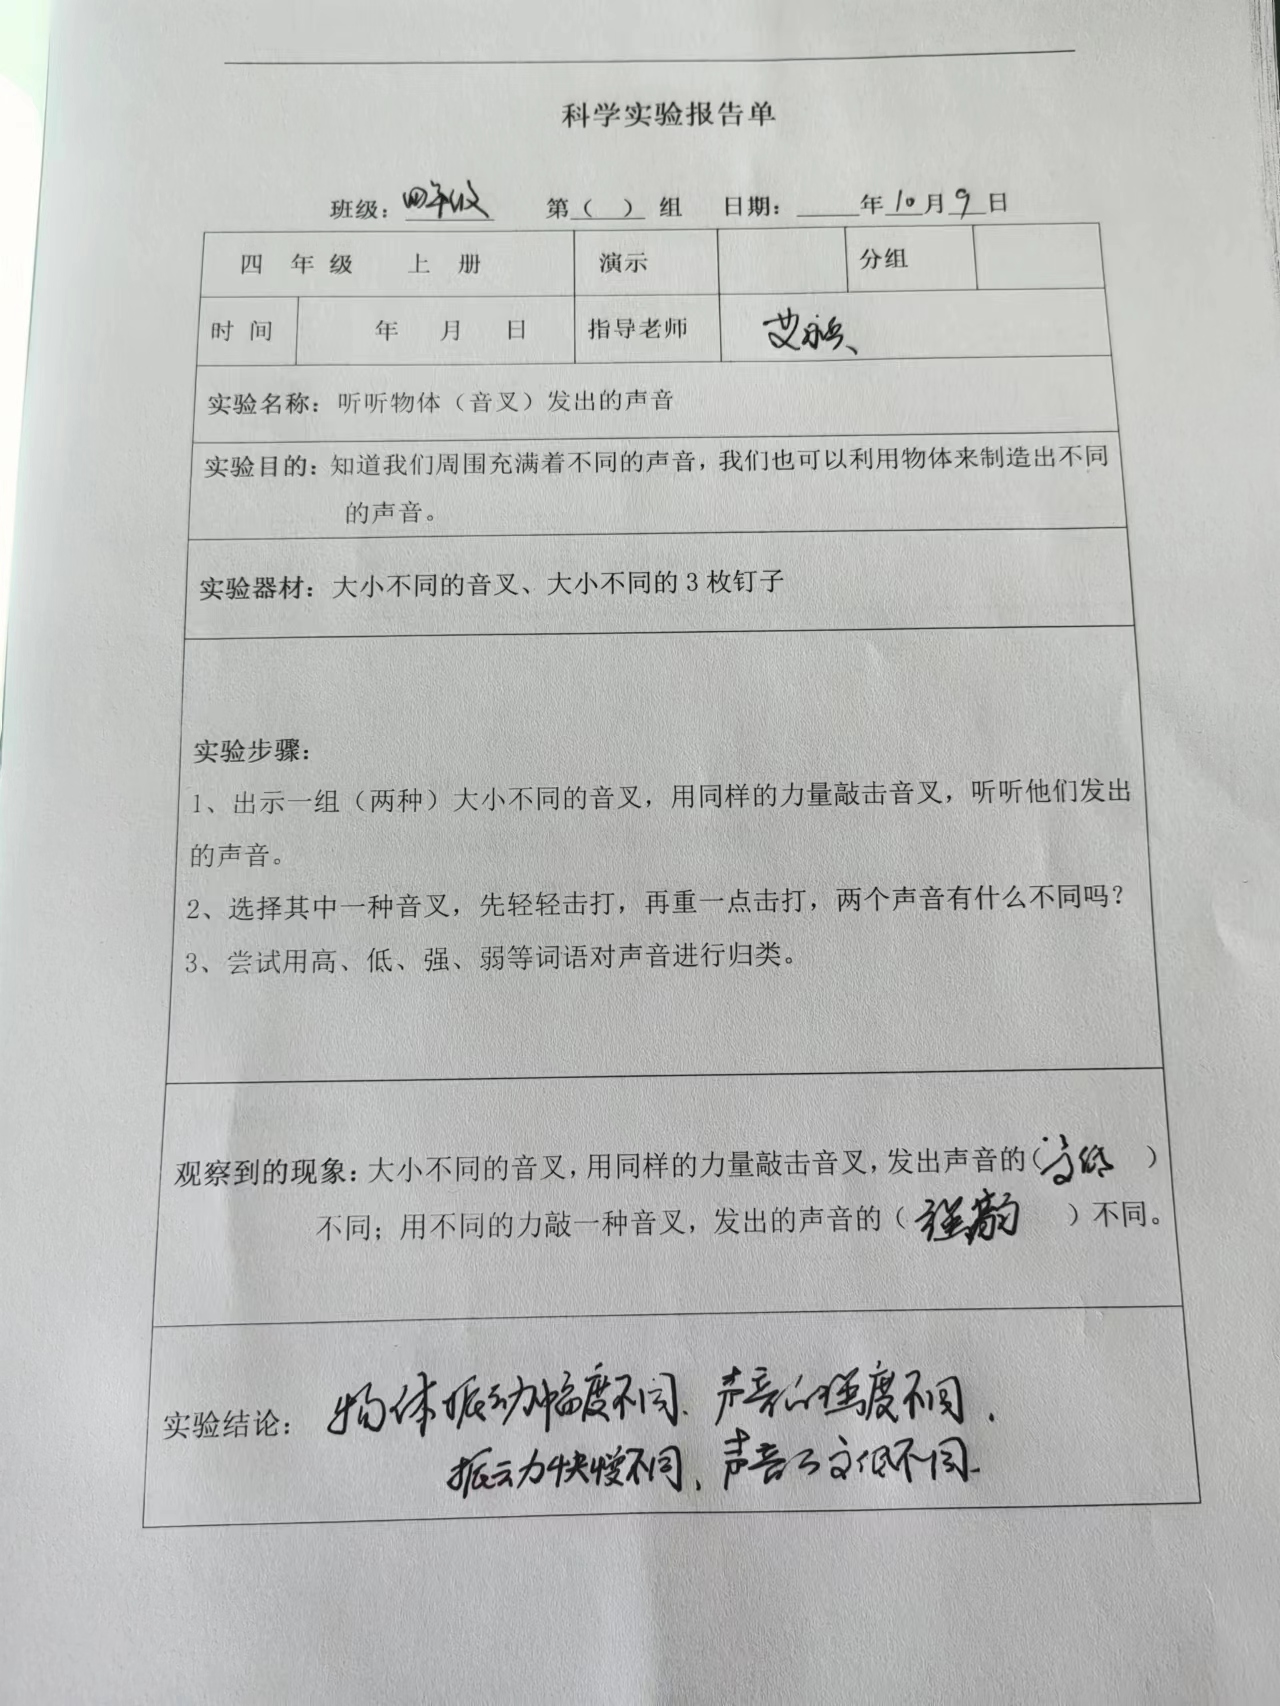 科学实验报告单
班级：四年级 第（ ）组 日期： 年10月9日
四 年 级 上 册 演示 分组
时 间 年 月 日 指导老师
实验名称：听听物体（音叉）发出的声音
实验目的：知道我们周围充满着不同的声音，我们也可以利用物体来制造出不同
的声音。
实验器材：大小不同的音叉、大小不同的 3 枚钉子
实验步骤：
1、出示一组（两种）大小不同的音叉，用同样的力量敲击音叉，听听他们发出
的声音。
2、选择其中一种音叉，先轻轻击打，再重一点击打，两个声音有什么不同吗？
3、尝试用高、低、强、弱等词语对声音进行归类。
观察到的现象：大小不同的音叉，用同样的力量敲击音叉，发出声音的（高低 ）
不同；用不同的力敲一种音叉，发出的声音的（ 强弱 ）不同。
实验结论： 物体振动幅度不同、声音的强度不同，
振动快慢不同，声音高低不同.